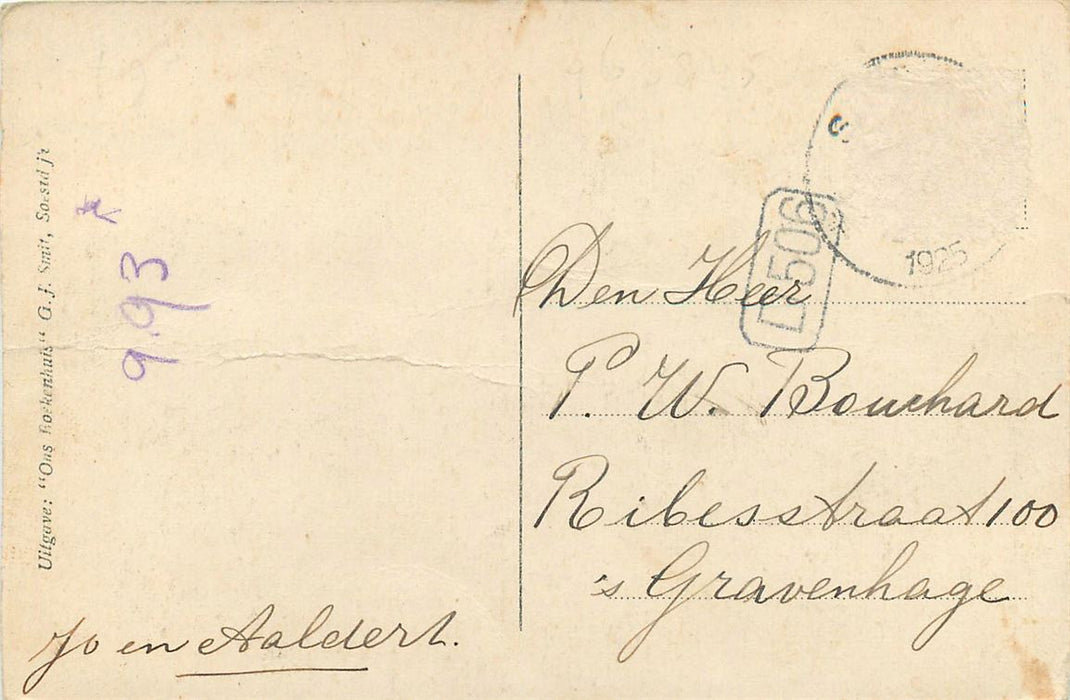 Uitgave: "Ons Boekenhuis" G. J. Smit, Soestdijk
993
Jo en Aaldert.
S
1925
D506
Den Heer
P. W. Bouchard
Ribesstraat 100
's Gravenhage